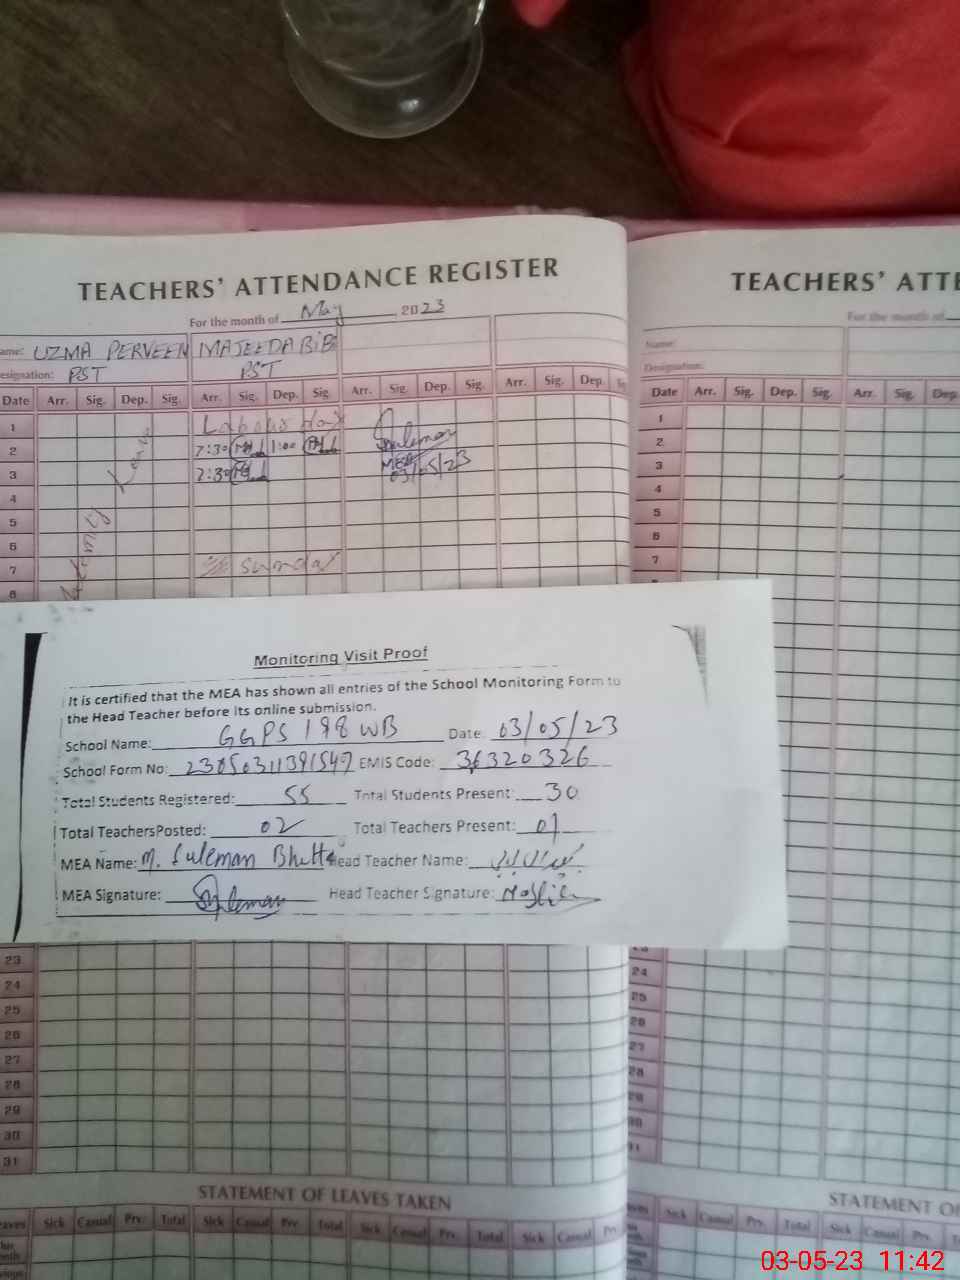 TEACHERS' ATTENDANCE REGISTER
For the month of May 2023
ame: UZMA PERVEEN MAJEEDA BiBi
esignation: PST PST
Date Arr. Sig. Dep. Sig. Arr. Sig. Dep. Sig. Arr. Sig. Dep. Sig. Arr. Sig. Dep. Sig
1
2 7:30 1:00 Suleman
3 7:30 MEA 03/05/23
4
5
6
7 Sunday
8
Leave
TEACHERS' ATTE
For the month of
Name:
Designation:
Date Arr. Sig. Dep. Sig. Arr. Sig. Dep
1
2
3
4
5
6
7
Monitoring Visit Proof
It is certified that the MEA has shown all entries of the School Monitoring Form to
the Head Teacher before its online submission.
School Name: GGPS 198 WB Date: 03/05/23
School Form No: 2305031139154 EMIS Code: 36320326
Total Students Registered: 55 Total Students Present: 30
Total TeachersPosted: 02 Total Teachers Present: 01
MEA Name: M. Suleman Bhutta Head Teacher Name:
MEA Signature: Suleman Head Teacher Signature:
23
24
25
26
27
28
29
30
31
STATEMENT OF LEAVES TAKEN
eaves Sick Casual Prv. Total Sick Casual Prv. Total Sick Casual Prv. Total Sick Casual Prv.
24
25
26
27
28
29
30
31
STATEMENT O
Sick Casual Prv. Total Sick Casual Prv.
03-05-23 11:42